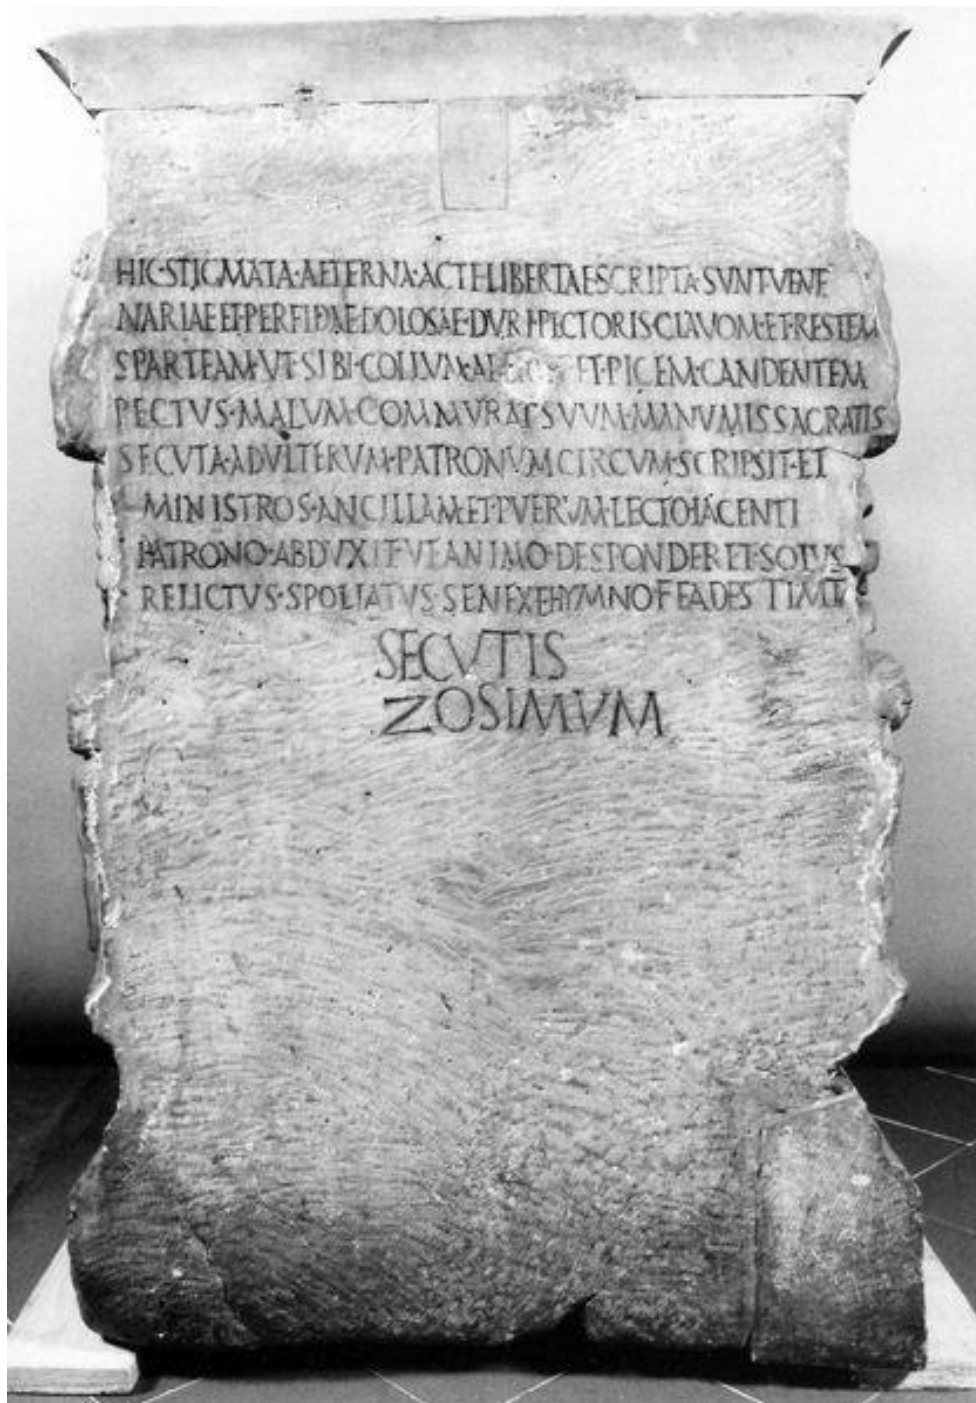 HIC·STIGMATA·AETERNA·ACTE·LIBERTAE·SCRIPTA·SVNT·VENE
NARIAE·ET·PERFIDAE·DOLOSAE·DVRI·PECTORIS·CLAVOM·ET·RESTEM
SPARTEAM·VT·SIBI·COLLVM·ET·PICEM·CANDENTEM
PECTVS·MALVM·COMMVRAT·SVVM·MANVMISSA·GRATIS
SECVTA·ADVLTERVM·PATRONVM·CIRCVMSCRIPSIT·ET
MINISTROS·ANCILLAM·ET·PVERVM·LECTO·IACENTI
PATRONO·ABDVXIT·VT·ANIMO·DESPONDERET·SOLVS
RELICTVS·SPOLIATVS·SENEX·E·HYMNO
SECVTIS
ZOSIMVM